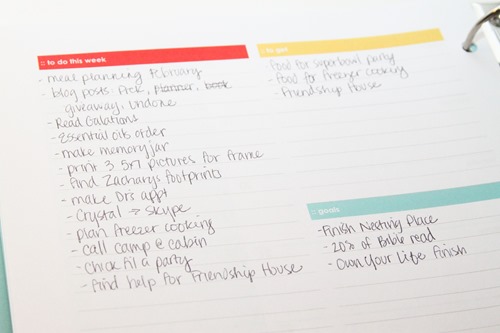 :: to do this week
- meal planning February
- blog posts: Pick, planner, book
giveaway, undone
- Read Galations
- Essential oils order
- make memory jar
- print 3 5x7 pictures for frame
- find Zacharys footprints
- make Drs appt
- Crystal → Skype
- plan freezer cooking
- call camp @ cabin
- Chick fil a party
- find help for Friendship House
:: to get
- food for superbowl party
- food for freezer cooking
- Friendship House
:: goals
- Finish Nesting Place
- 20% of Bible read
- Own Your Life finish